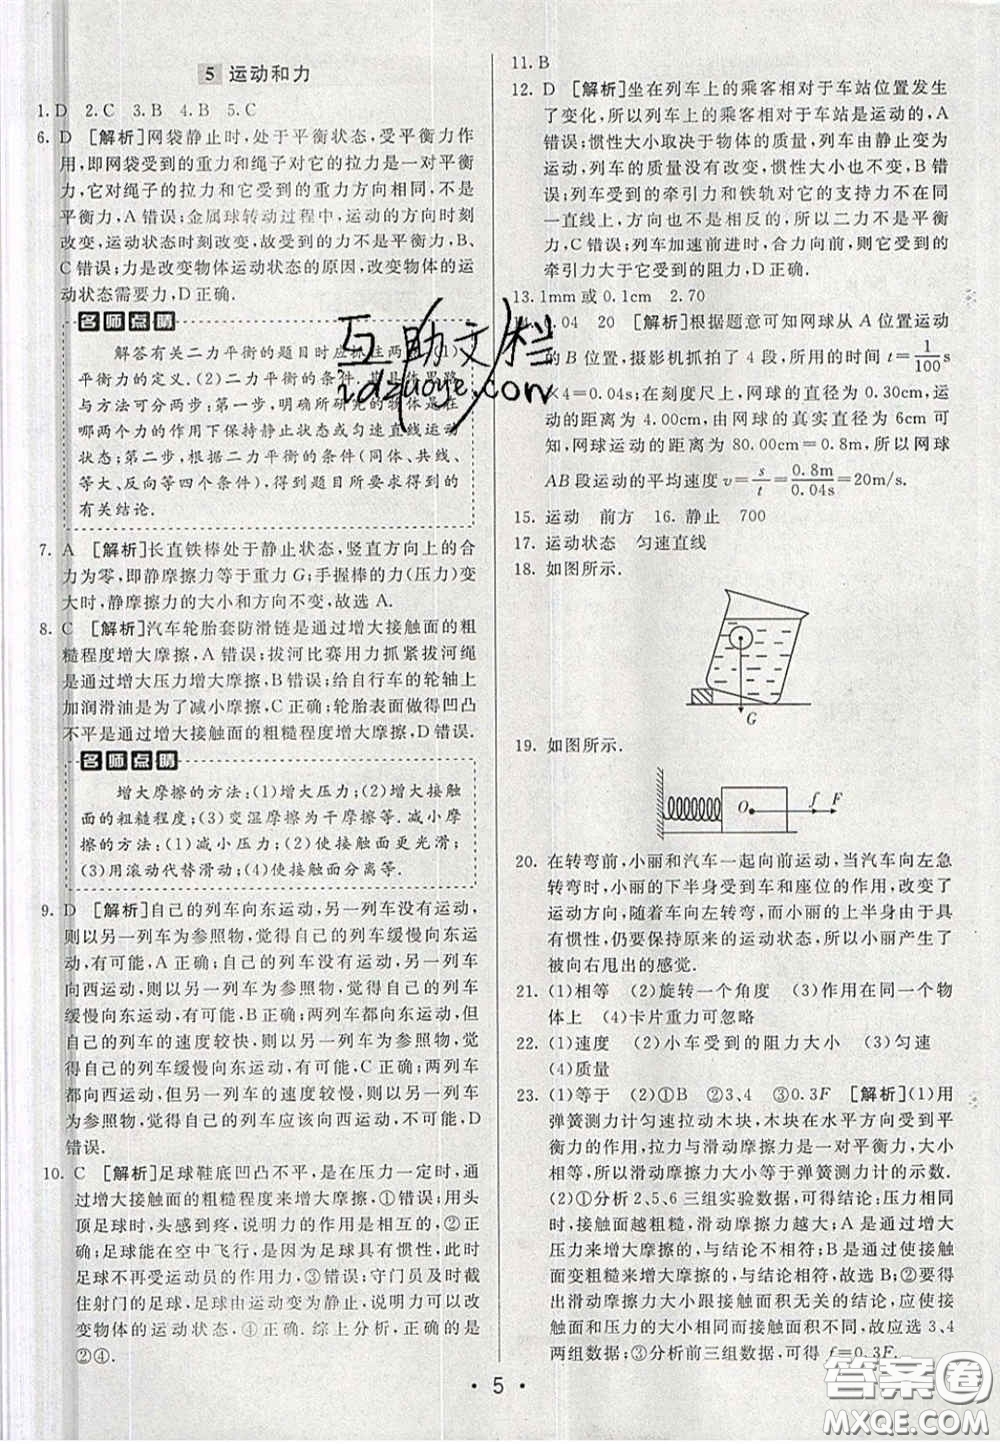 5 运动和力
1. D 2. C 3. B 4. B 5. C
6. D [解析]网袋静止时,处于平衡状态,受平衡力作
用,即网袋受到的重力和绳子对它的拉力是一对平衡
力,它对绳子的拉力和它受到的重力方向相同,不是
平衡力,A错误;金属球转动过程中,运动的方向时刻
改变,运动状态时刻改变,故受到的力不是平衡力,B、
C错误;力是改变物体运动状态的原因,改变物体的运
动状态需要力,D正确.
名师点睛
解答有关二力平衡的题目时应抓住两点:(1)
平衡力的定义.(2)二力平衡的条件.其具体思路
与方法可分两步:第一步,明确所研究的物体是在
哪两个力的作用下保持静止或匀速直线运动
状态;第二步,根据二力平衡的条件(同体、共线、
等大、反向等四个条件),得到题目所要求得到的
有关结论.
7. A [解析]长直铁棒处于静止状态,竖直方向上的合
力为零,即静摩擦力等于重力G;手握棒的力(压力)变
大时,静摩擦力的大小和方向不变,故选A.
8. C [解析]汽车轮胎套防滑链是通过增大接触面的粗
糙程度增大摩擦,A错误;拔河比赛用力抓紧拔河绳
是通过增大压力增大摩擦,B错误;给自行车的轮轴上
加润滑油是为了减小摩擦,C正确;轮胎表面做得凹凸
不平是通过增大接触面的粗糙程度增大摩擦,D错误.
名师点睛
增大摩擦的方法:(1)增大压力;(2)增大接触
面的粗糙程度;(3)变湿摩擦为干摩擦等.减小摩
擦的方法:(1)减小压力;(2)使接触面更光滑;
(3)用滚动代替滑动;(4)使接触面分离等.
9. D [解析]自己的列车向东运动,另一列车没有运动,
则以另一列车为参照物,觉得自己的列车缓慢向东运
动,有可能,A正确;自己的列车没有运动,另一列车
向西运动,则以另一列车为参照物,觉得自己的列车
缓慢向东运动,有可能,B正确;两列车都向东运动,但
自己的列车的速度较快,则以另一列车为参照物,觉
得自己的列车缓慢向东运动,有可能,C正确;两列车
都向东运动,但另一列车的速度较慢,则以另一列车
为参照物,觉得自己的列车应该向西运动,不可能,D
错误.
10. C [解析]足球鞋底凹凸不平,是在压力一定时,通
过增大接触面的粗糙程度来增大摩擦,①错误;用头
顶足球时,头感到疼,说明力的作用是相互的,②正
确;足球能在空中飞行,是因为足球具有惯性,此时
足球不再受运动员的作用力,③错误;守门员及时截
住射门的足球,足球由运动变为静止,说明力可以改
变物体的运动状态,④正确.综上分析,正确的是
②④.
11. B
12. D [解析]坐在列车上的乘客相对于车站位置发生
了变化,所以列车上的乘客相对于车站是运动的,A
错误;惯性大小取决于物体的质量,列车由静止变为
运动,列车的质量没有改变,惯性大小不变,B错
误;列车受到的牵引力和铁轨对它的支持力不在同
一直线上,方向也不是相反的,所以二力不是平衡
力,C错误;列车加速前进时,合力向前,则它受到的
牵引力大于它受到的阻力,D正确.
13. 1mm或0.1cm 2.70
.04 20 [解析]根据题意可知网球从A位置运动
的B位置,摄影机抓拍了4段,所用的时间t=1/100s
×4=0.04s;在刻度尺上,球的直径为0.30cm,运
动的距离为4.00cm,由网球的真实直径为6cm可
知,网球运动的距离为80.00cm=0.8m,所以网球
AB段运动的平均速度v=s/t=0.8m/0.04s=20m/s.
15. 运动 前方 16. 静止 700
17. 运动状态 匀速直线
18. 如图所示.
G
19. 如图所示.
O f F
20. 在转弯前,小丽和汽车一起向前运动,当汽车向左急
转弯时,小丽的下半身受到车和座位的作用,改变了
运动方向,随着车向左转弯,而小丽的上半身由于
具有惯性,仍要保持原来的运动状态,所以小丽产生了
被向右甩出的感觉.
21. (1)相等 (2)旋转一个角度 (3)作用在同一个物
体上 (4)卡片重力可忽略
22. (1)速度 (2)小车受到的阻力大小 (3)匀速
(4)质量
23. (1)等于 (2)①B ②3、4 ③0.3F [解析](1)用
弹簧测力计匀速拉动木块,木块在水平方向受到平
衡力的作用,拉力与滑动摩擦力是一对平衡力,大小
相等,滑动摩擦力大小等于弹簧测力计的示数.
(2)①分析2、5、6三组实验数据,可得结论:压力相同
时,接触面越粗糙,滑动摩擦力越大;A是通过增大
压力来增大摩擦,与结论不相符,B是通过使接触
面变粗糙来增大摩擦,与结论相符,故选B;②要得
出滑动摩擦力大小跟接触面积无关的结论,应使接
触面粗糙程度相同而接触面积大小不同,故应选3、4
两组数据;③分析前三组数据,可得f=0.3F.
• 5 •
互助文档
idzuoye.com
答案圈
MXQE.COM